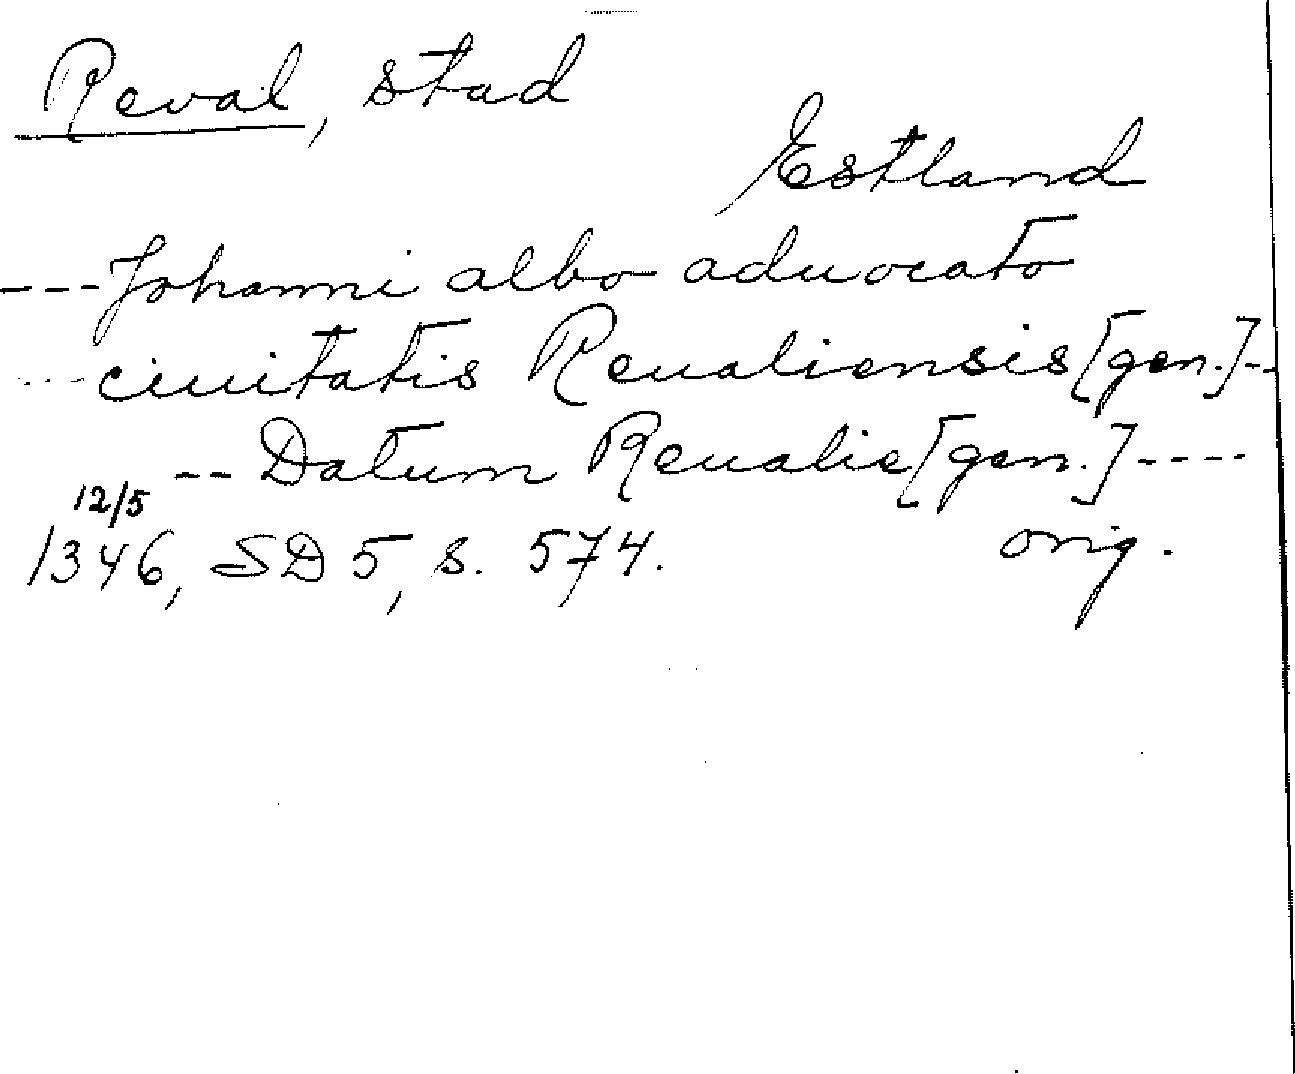 Reval, stad
Estland
---Johanni albo aduocato
---ciuitatis Reualiensis [gen.]--
--Datum Reualie [gen.]----
12/5
1346, SD 5, s. 574. orig.